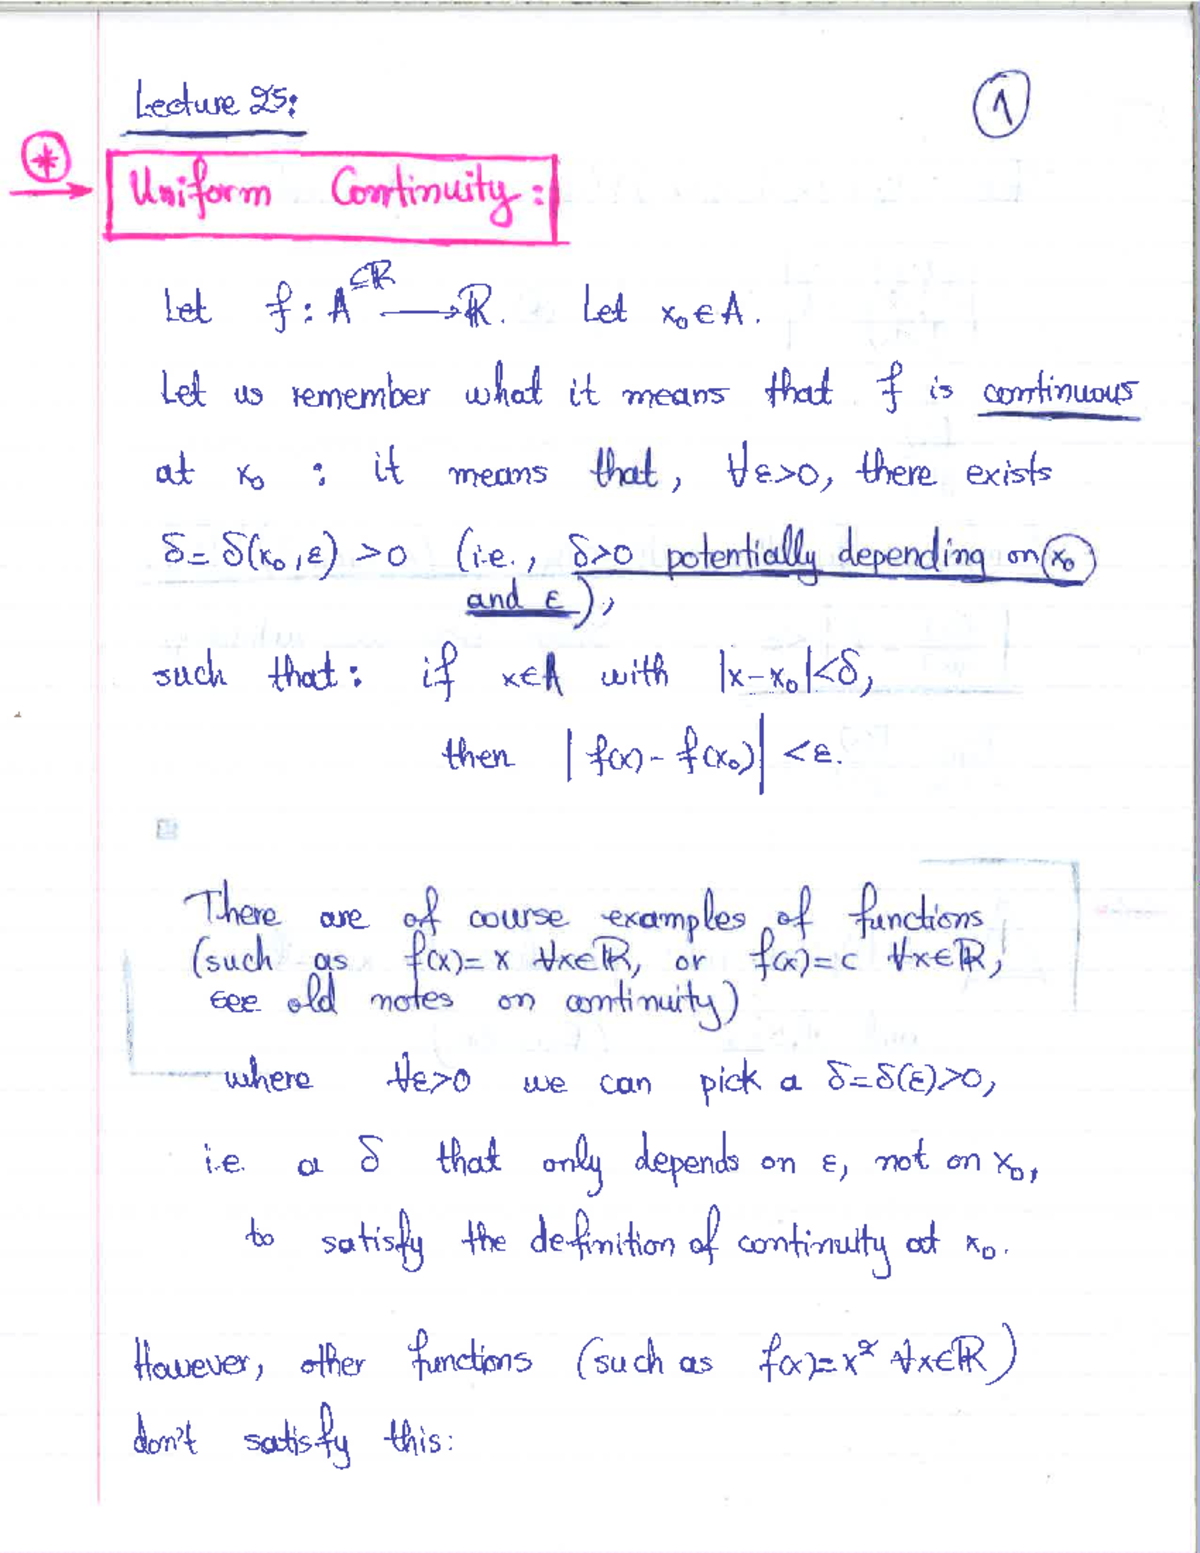 Lecture 25:
1
*
Uniform Continuity:
Let f: A⊆ℝ → ℝ. Let x₀∈A.
Let us remember what it means that f is continuous
at x₀ : it means that, ∀ε>0, there exists
δ=δ(x₀,ε)>0 (i.e., δ>0 potentially depending on x₀
and ε),
such that: if x∈A with |x-x₀|<δ,
then |f(x)-f(x₀)|<ε.
There are of course examples of functions
(such as f(x)=x ∀x∈ℝ, or f(x)=c ∀x∈ℝ,
see old notes on continuity)
where ∀ε>0 we can pick a δ=δ(ε)>0,
i.e. a δ that only depends on ε, not on x₀,
to satisfy the definition of continuity at x₀.
However, other functions (such as f(x)=x² ∀x∈ℝ)
don't satisfy this: